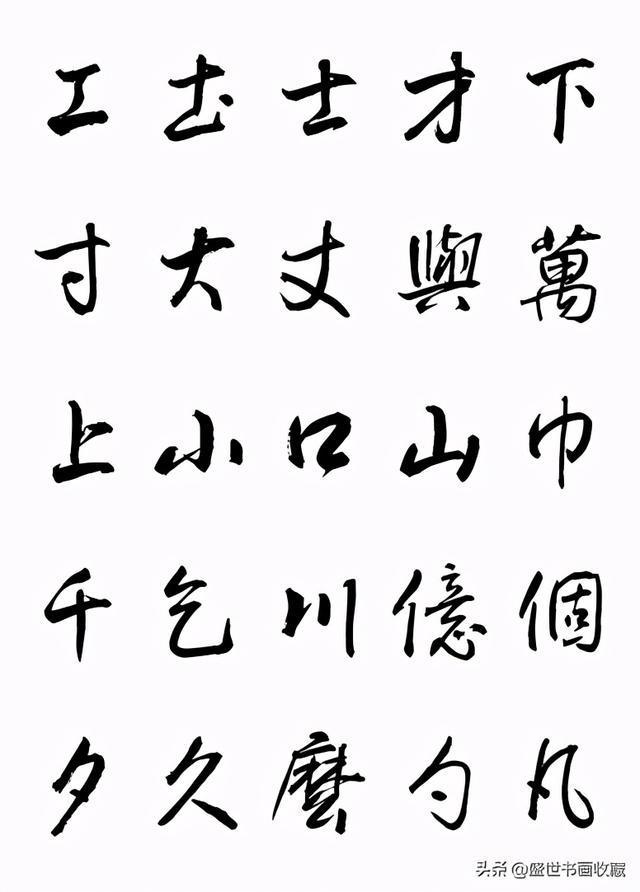 工土士才下
寸大丈與萬
上小口山巾
千乞川億個
夕久麼勺凡
头条@盛世书画收藏